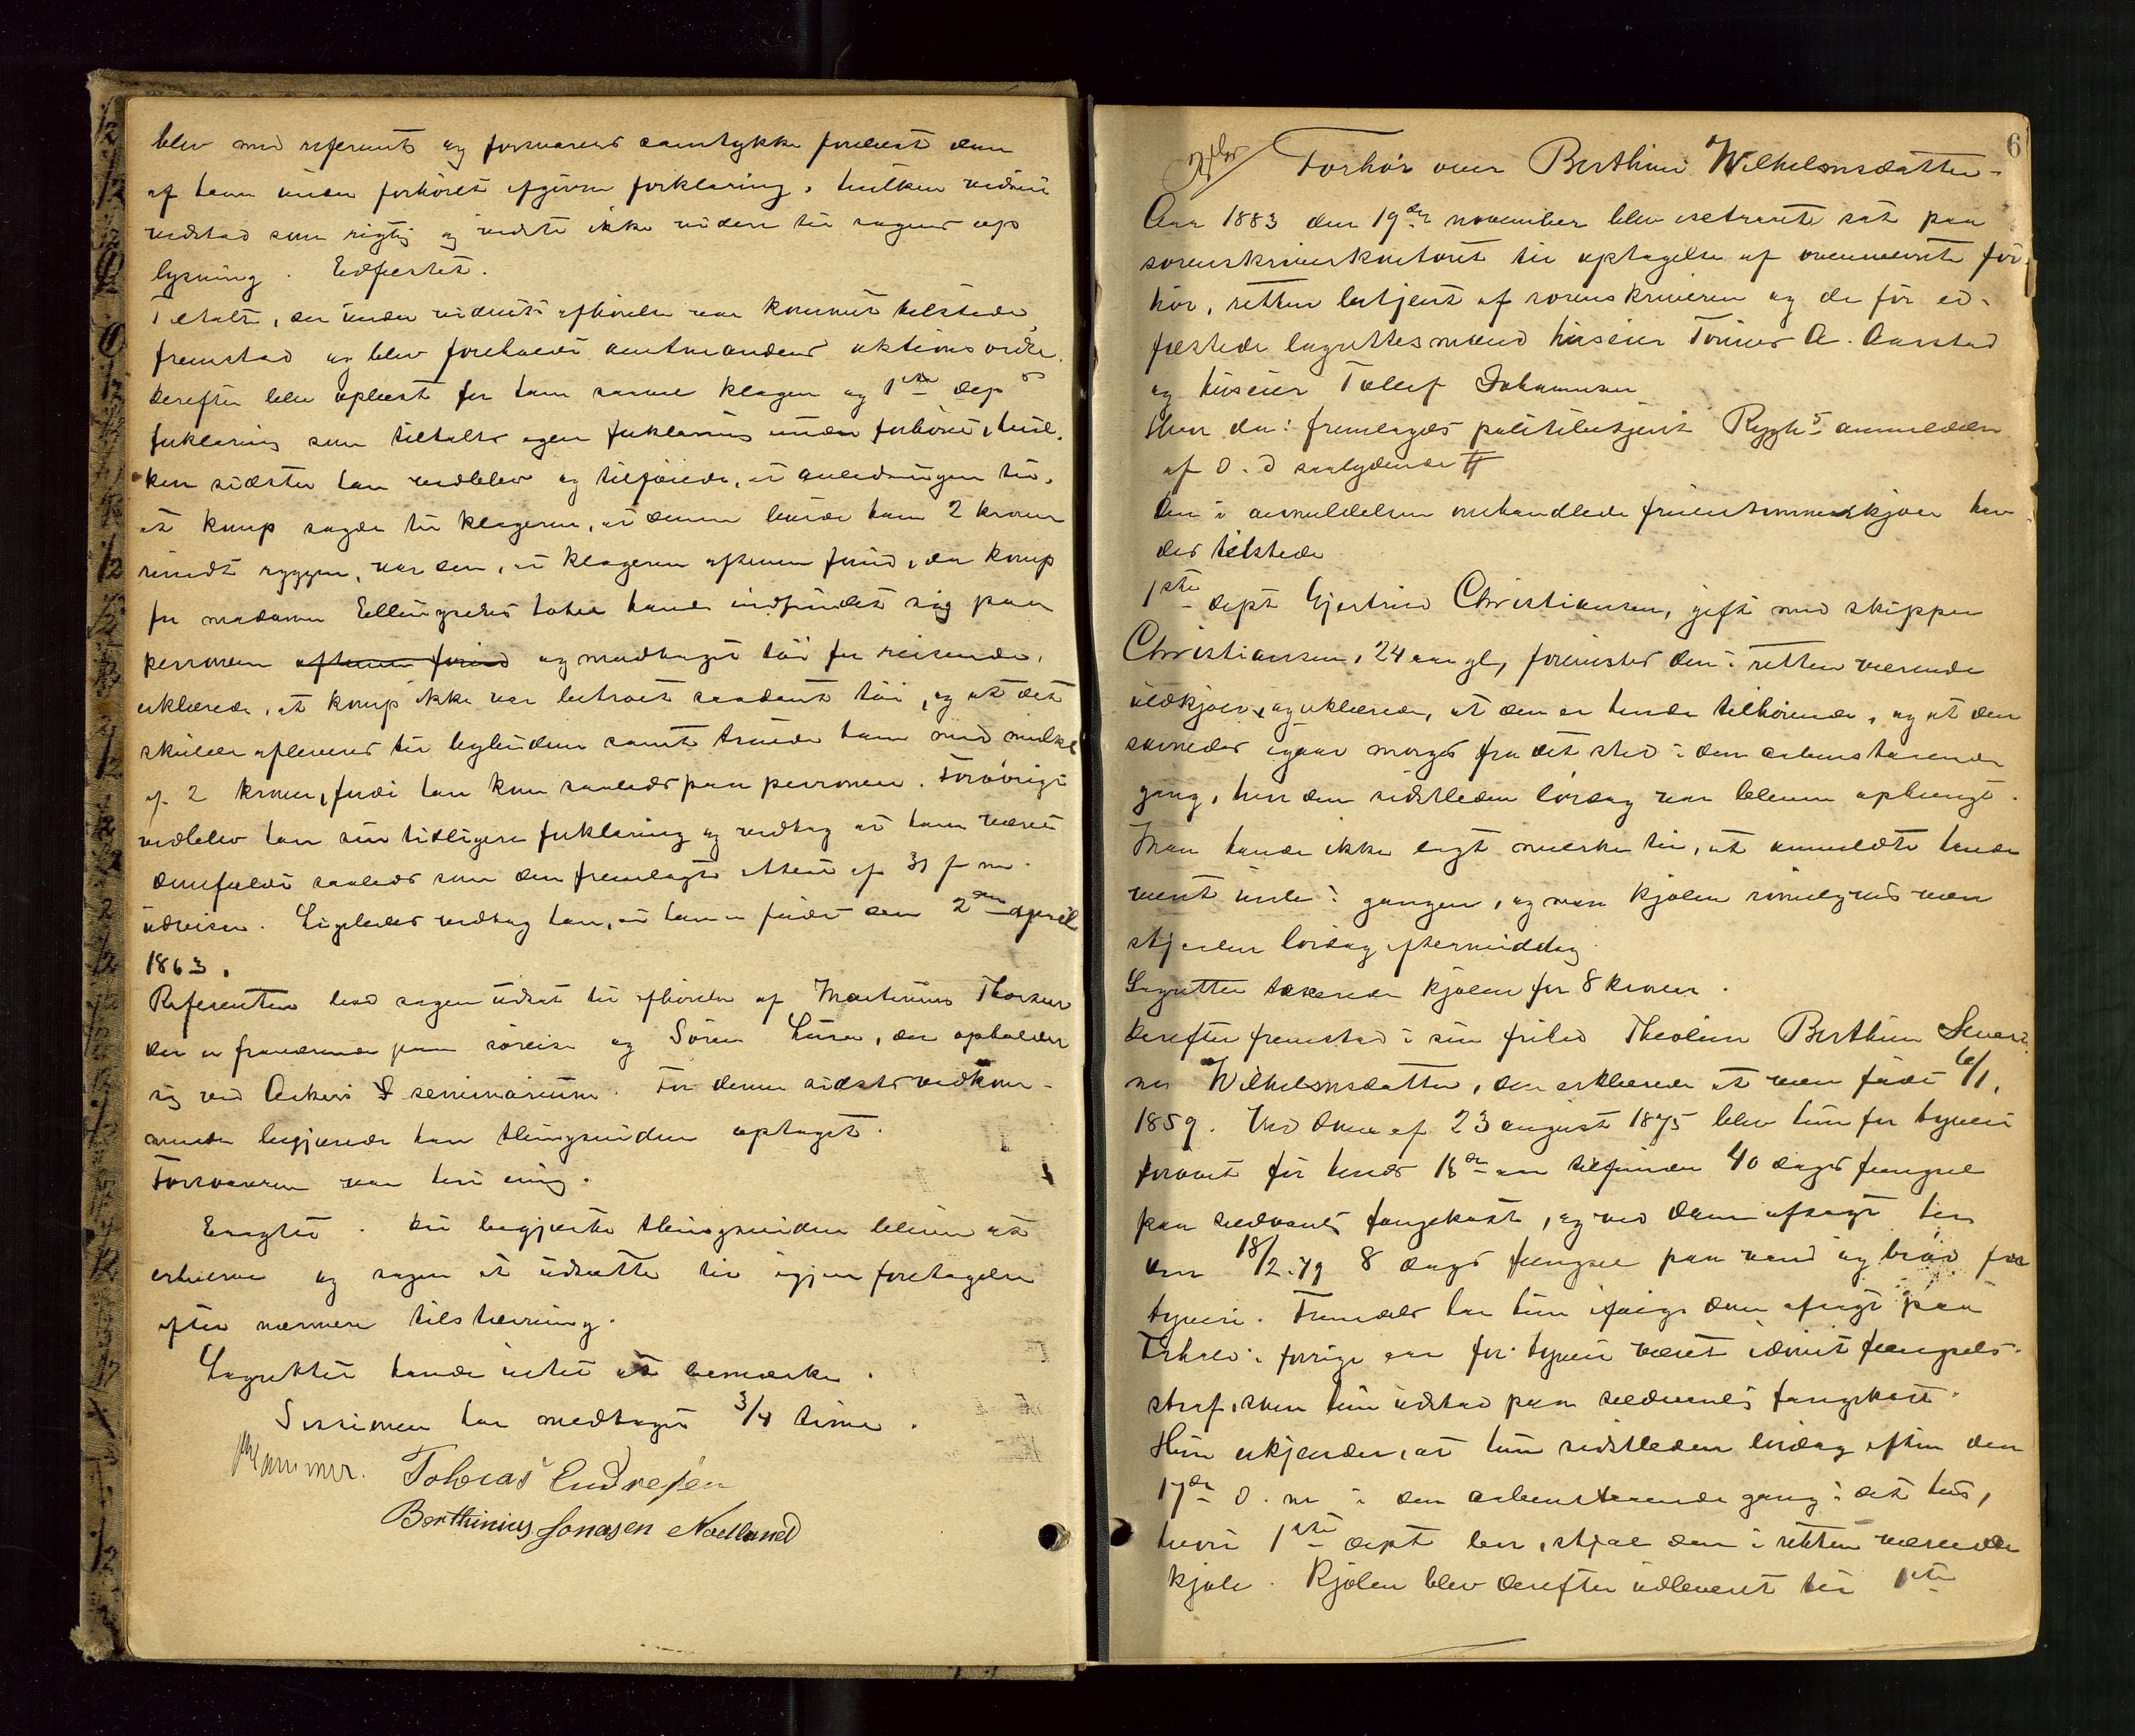 blev med referents og forsvarers samtykke forelæst den
af ham under forhöret afgivne forklaring, hvilken vidnet
vedstod som rigtig og vidste ikke videre til sagens op
lysning. Edfæstet.
Tiltalte, der under vidnets afhörelse var kommet tilstede,
fremstod og blev foreholdt amtmandens aktionsordre.
Derefter blev oplæst for ham samme klagen og 1ste dep s
forklaring som tiltaltes egen forklaring under forhöret, hvil,
ken sidste han vedblev og tilföiede, at anledningen til,
at komp sagde til klageren, at denne havde ham 2 kroner
rundt ryggen, var den, at klageren aftenen forud, da komp
for madamen Ellingsens hotel havde indfundet sig paa
perronen aftenen forud og modtaget töi for reisende,
erklærede, at komp ikke var betroet saadant töi, og at det
skulde afleveres til byeldene samt truede ham med mulkt
af 2 kroner, fordi han kom saaledes paa perronen. Forövrigt
vedblev han sin tidligere forklaring og vedtog at have været
domfældt saaledes som den fremlagte attest af 31 f m
udviser. Ligeledes vedtog han, at han er födt den 2den april
1863.
Referenten bad sagen udsat til afhörelse af Martinius Thorsen
der er fraværende paa söreise og Sören Lura, der opholder
sig ved Askers seminarium. For denne sidstes vedkom-
mende begjærede han thingsvidne optaget.
Forsvareren var heri enig.
Eragtet. Det begjærte thingsvidne bliver at
erhverve og sagen at udsætte til igjen foretagelse
efter nærmere tilstævning.
Lagrettet havde intet at bemærke.
Sessionen har medtaget 3/4 time.
Hammer. Tobias Endresen
Berthinius Jonasen Nodland
6
Forhör over Berthine Wilhelmsdatter.
Aar 1883 den 19de november blev extraret sat paa
sorenskriverkontoret til optagelse af ovennævnte for
hör, retten betjent af sorenskriveren og de för ed-
fæstede lagrettesmænd huseier Tönnes A. Aarstad
og huseier Tollef Johannesen
Hvor da: fremlagdes politibetjent Ryghs anmeldelse
af D. D saalydende #
Den i anmeldelsen omhandlede fruentimmerskjole hav
des tilstede
1ste dept Gjertrud Christiansen, gift med skipper
Christiansen, 24 aar gl, forevistes den i retten værende
uldkjole, og erklærede, at den er hende tilhörende, og at den
savnedes igaar morges fra det sted i den aabenstaaende
gang, hvor den sidstleden lördag var bleven ophængt.
Man havde ikke lagt mærke til, at anmeldte havde
været inde i gangen, og var kjolen rimeligvis var
stjaalen lördag eftermiddag.
Lagrettet taxerede kjolen for 8 kroner.
Derefter fremstod i sin frihed Theoline Berthine Severi
ne Wilhelmsdatter, der erklærede at være födt 6/1,
1859. Ved dom af 23 august 1875 blev hun for tyveri
forövet för hendes 18de aar tilfunden 40 dages fængsel
paa sædvanlig fangekost, og ved dom afsagt her
den 18/2.79 8 dages fængsel paa vand og bröd for
tyveri. Fremdeles har hun ifölge dom afsagt paa
i forrige aar for tyveri været idömt fængsels-
straf, som hun udstod paa sædvanlig fangekost.
Hun erkjender, at hun sidstleden lördag aften den
17de d. m i den aabenstaaende gang i det hus,
hvori 1ste dept bor, stjal den i retten værende
kjole. Kjolen blev derefter udleveret til 1ste